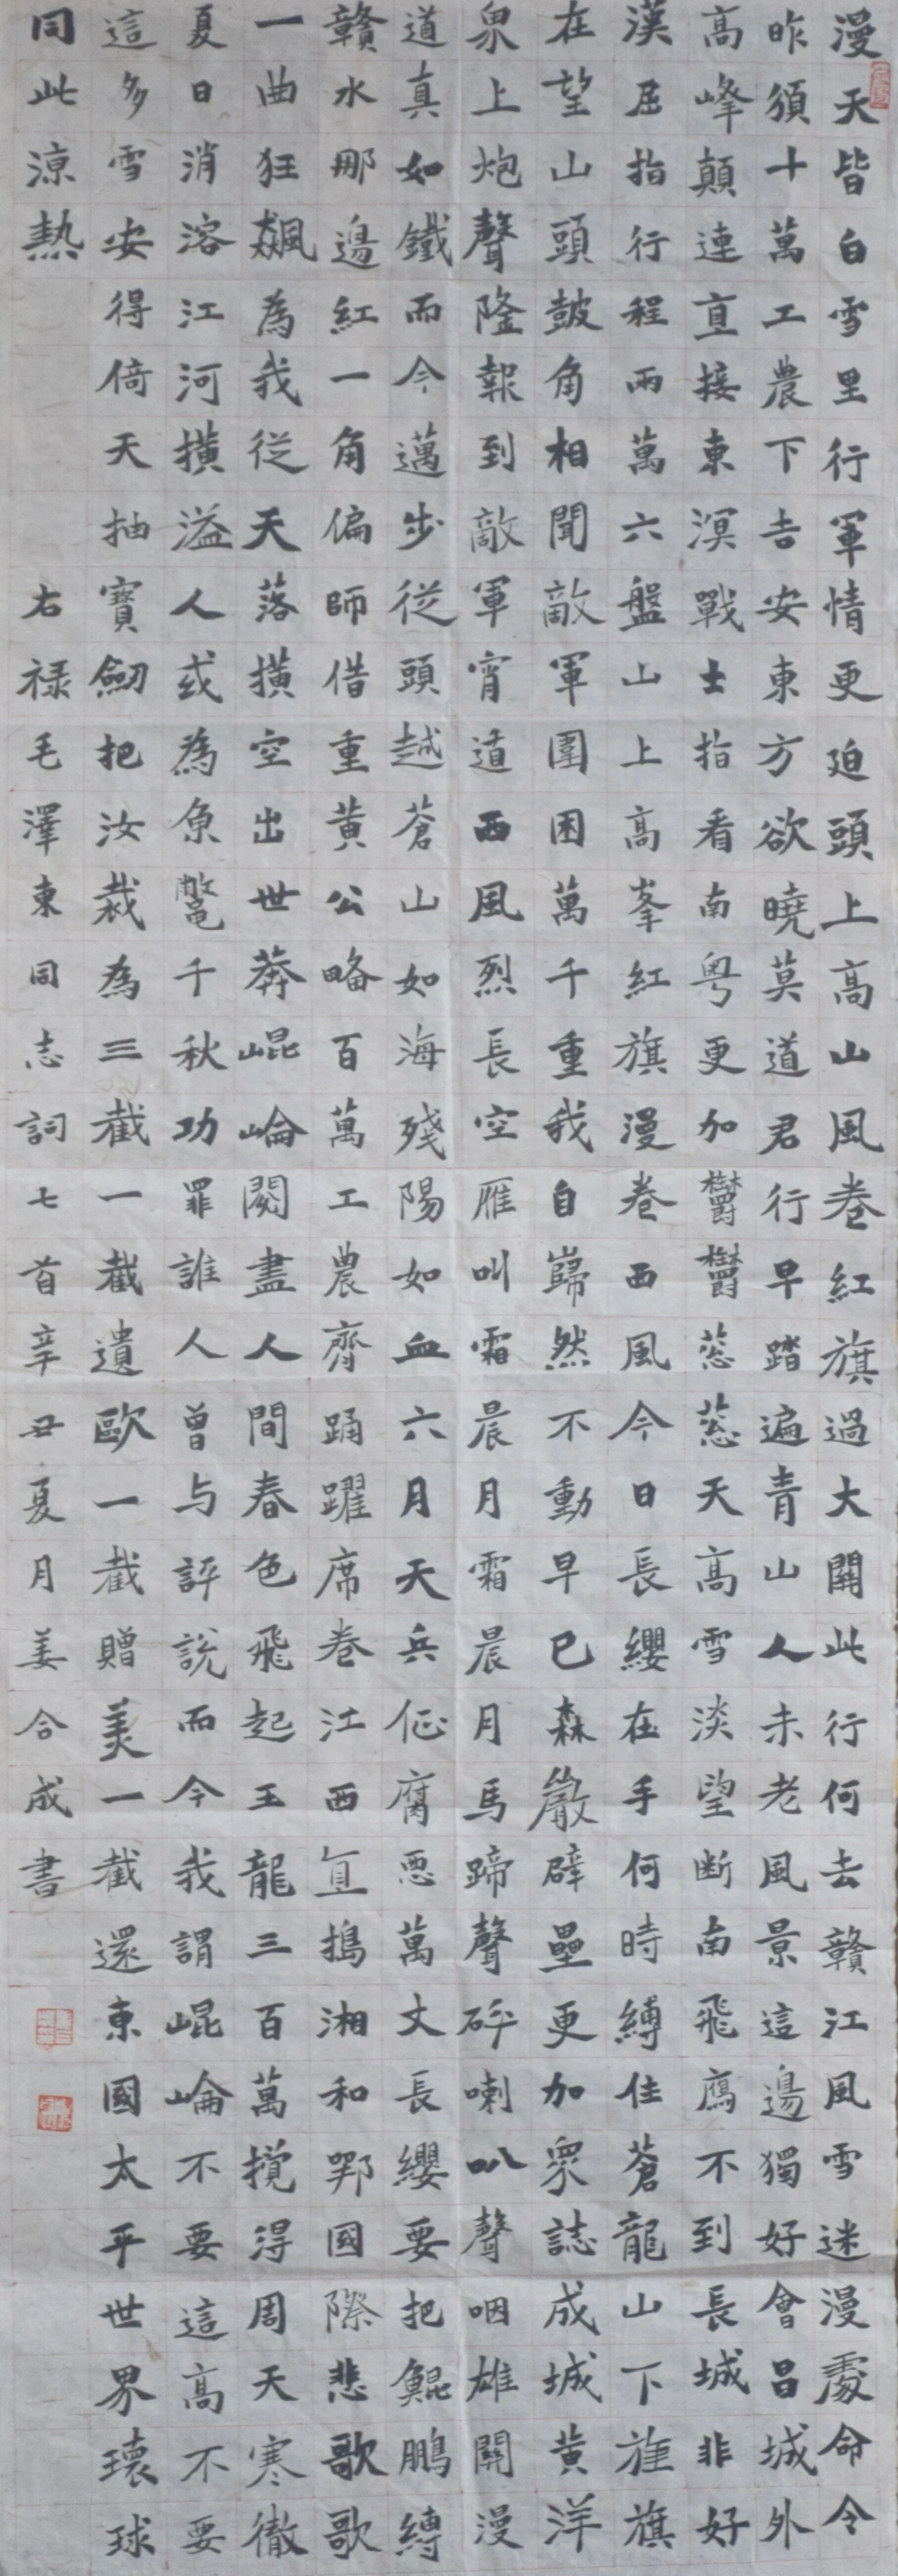 漫天皆白雪里行軍情更迫頭上高山風卷紅旗過大關此行何去贛江風雪迷漫處命令
昨頒十萬工農下吉安東方欲曉莫道君行早踏遍青山人未老風景這邊獨好會昌城外
高峰顛連直接東溟戰士指看南粤更加鬱鬱蔥蔥天高雪淡望断南飛鴈不到長城非好
漢屈指行程兩萬六盤山上高峯紅旗漫卷西風今日長纓在手何時縛住蒼龍山下旌旗
在望山頭鼓角相聞敵軍圍困萬千重我自巋然不動早已森嚴壁壘更加眾誌成城黄洋
界上炮聲隆報到敵軍宵遁西風烈長空雁叫霜晨月霜晨月馬蹄聲碎喇叭聲咽雄關漫
道真如鐵而今邁步從頭越蒼山如海殘陽如血六月天兵征腐惡萬丈長纓要把鯤鵬縛
贛水那邊紅一角偏師借重黄公略百萬工農齊踴躍席卷江西直搗湘和鄂國際悲歌歌
一曲狂飆為我從天落橫空出世莽崐崘閱盡人間春色飛起玉龍三百萬攪得周天寒徹
夏日消溶江河橫溢人或為魚鼈千秋功罪誰人曾与評説而今我謂崐崘不要這高不要
這多雪安得倚天抽寶劒把汝裁為三截一截遺歐一截贈美一截還東國太平世界環球
同此涼熱 右禄毛澤東同志詞七首辛丑夏月姜合成書